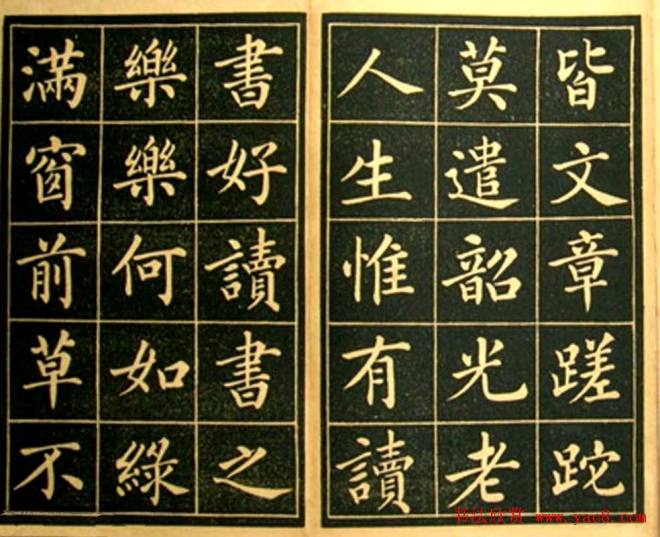 皆文章蹉跎
莫遣韶光老
人生惟有讀
書好讀書之
樂樂何如綠
滿窗前草不
书法欣赏 www.yac8.com